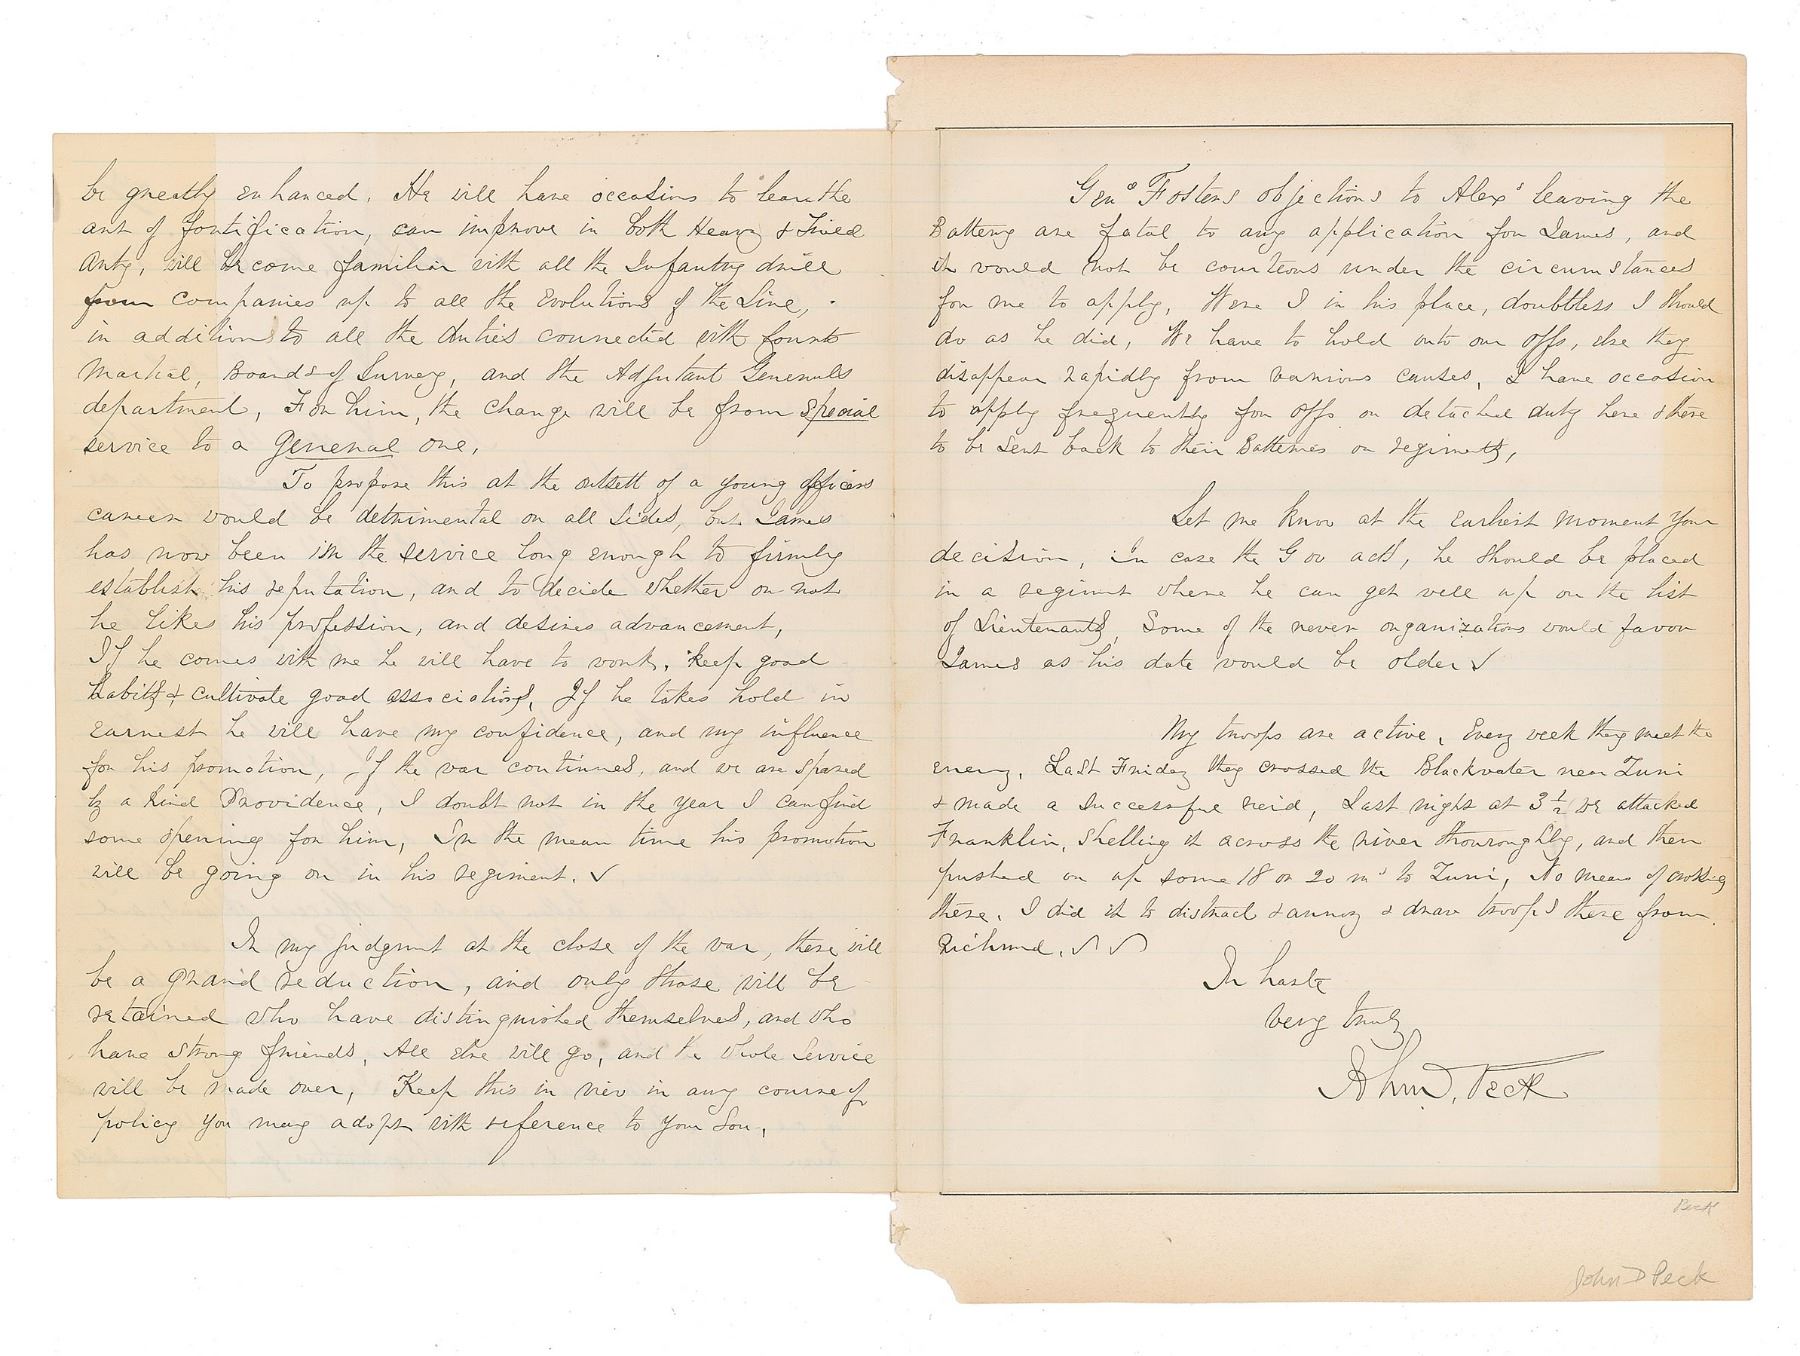 be greatly enhanced. He will have occasions to learn the
art of fortification, can improve in both Heavy & Field
Arty, will become familiar with all the Infantry drill
from companies up to all the Evolutions of the Line,
in addition to all the duties connected with Courts
Martial, Boards of Survey, and the Adjutant Generals
department, For him, the change will be from special
service to a general one.
To propose this at the outsett of a young officers
career would be detrimental on all sides, but James
has now been in the service long enough to firmly
establish his reputation, and to decide whether or not
he likes his profession, and desires advancement,
If he comes with me he will have to work, keep good
habits & cultivate good associations, If he takes hold in
earnest he will have my confidence, and my influence
for his promotion, If the war continues, and we are spared
by a kind Providence, I doubt not in the year I can find
some opening for him, In the mean time his promotion
will be going on in his regiment. ✓
In my judgment at the close of the war, there will
be a grand reduction, and only those will be
retained who have distinguished themselves, and who
have strong friends, All else will go, and the whole Service
will be made over, Keep this in view in any course of
policy you may adopt with reference to your Son,
Genº Fosters objections to Alexs leaving the
Battery are fatal to any application for James, and
it would not be courteous under the circumstances
for me to apply, Were I in his place, doubtless I should
do as he did, We have to hold onto our offs, else they
disappear rapidly from various causes, I have occasion
to apply frequently for offs on detached duty here & there
to be sent back to their Batteries or regiments,
Let me know at the earliest moment your
decision, In case the Gov acts, he should be placed
in a regiment where he can get well up on the list
of Lieutenants, Some of the newer organizations would favor
James as his date would be older ✓
My troops are active, Every week they meet the
enemy, Last Friday they crossed the Blackwater near Zuni
& made a successful reid, Last night at 3½ we attacked
Franklin, shelling it across the river thouroughly, and then
pushed on up some 18 or 20 ms to Zuni, No means of crossing
there, I did it to distract & annoy & draw troops there from
Richmond.
In haste
very truly
John J. Peck
Peck
John D Peck